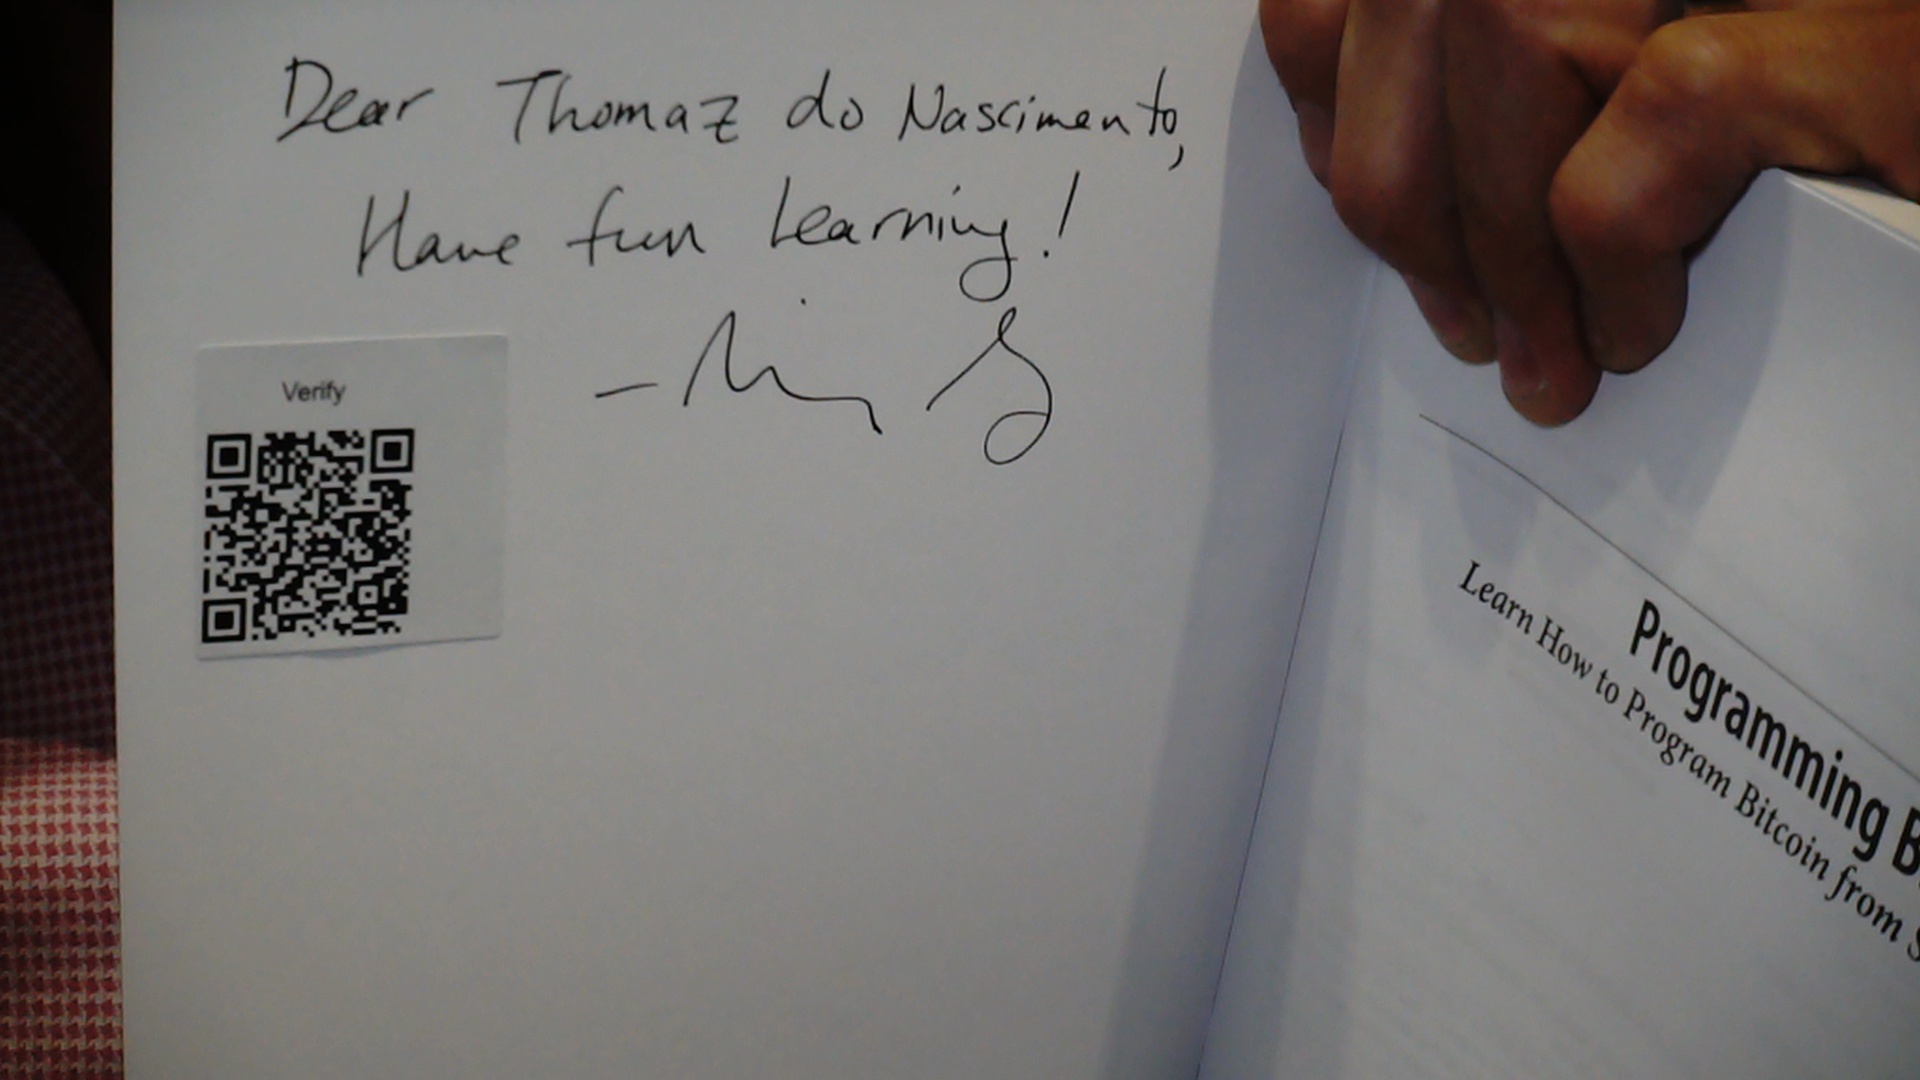 Dear Thomaz do Nascimento,
Have fun Learning!
Verify
Programming B
Learn How to Program Bitcoin from S